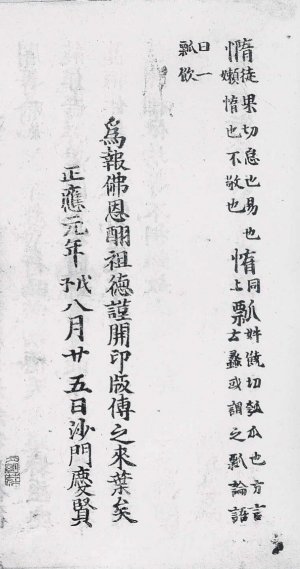 惰徒果切怠也易也嬾惰也不敬也惰同上瓢切瓠瓜也方言云蠡或謂之瓢論語
曰一瓢飲
爲報佛恩酬祖德謹開印版傳之來葉矣
正應元年戊子八月廿五日沙門慶賢